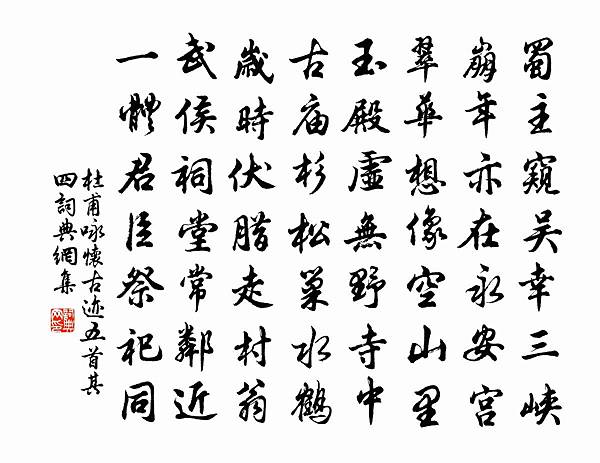 蜀主窺吴幸三峡
崩年亦在永安宮
翠華想像空山里
玉殿虛無野寺中
古庙杉松巢水鶴
歲時伏腊走村翁
武侯祠堂常鄰近
一體君臣祭祀同
杜甫咏懷古迹五首其
四詞典網集